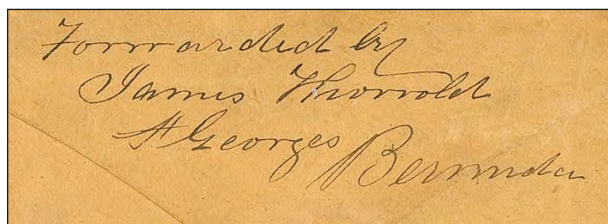 Forwarded by
James Thorrold
St Georges
Bermuda